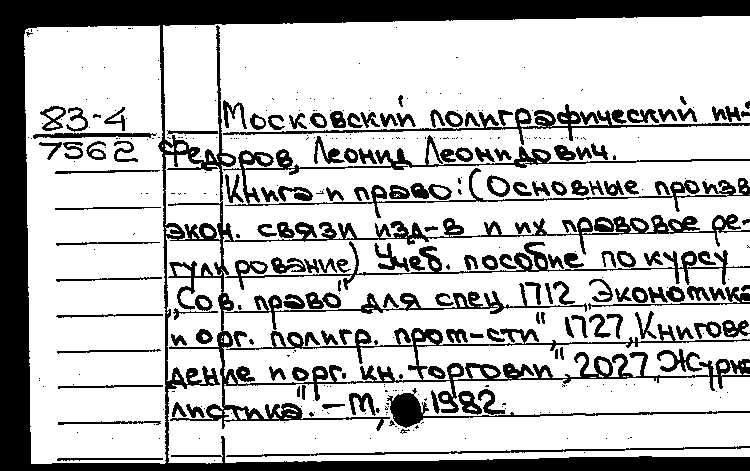 83-4
7562
Московский полиграфический ин-
Федоров, Леонид Леонидович.
Книга и право: (Основные произв
экон. связи изд-в и их правовое ре-
гулирование) Учеб. пособие по курсу
„Сов. право" для спец. 1712 „Экономика
и орг. полигр. пром-сти", 1727 „Книгове
дение и орг. кн. торговли", 2027 „Журна
листика". – М., 1982.